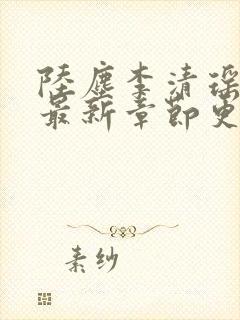 陆尘李清瑶
最新章节更
素纱